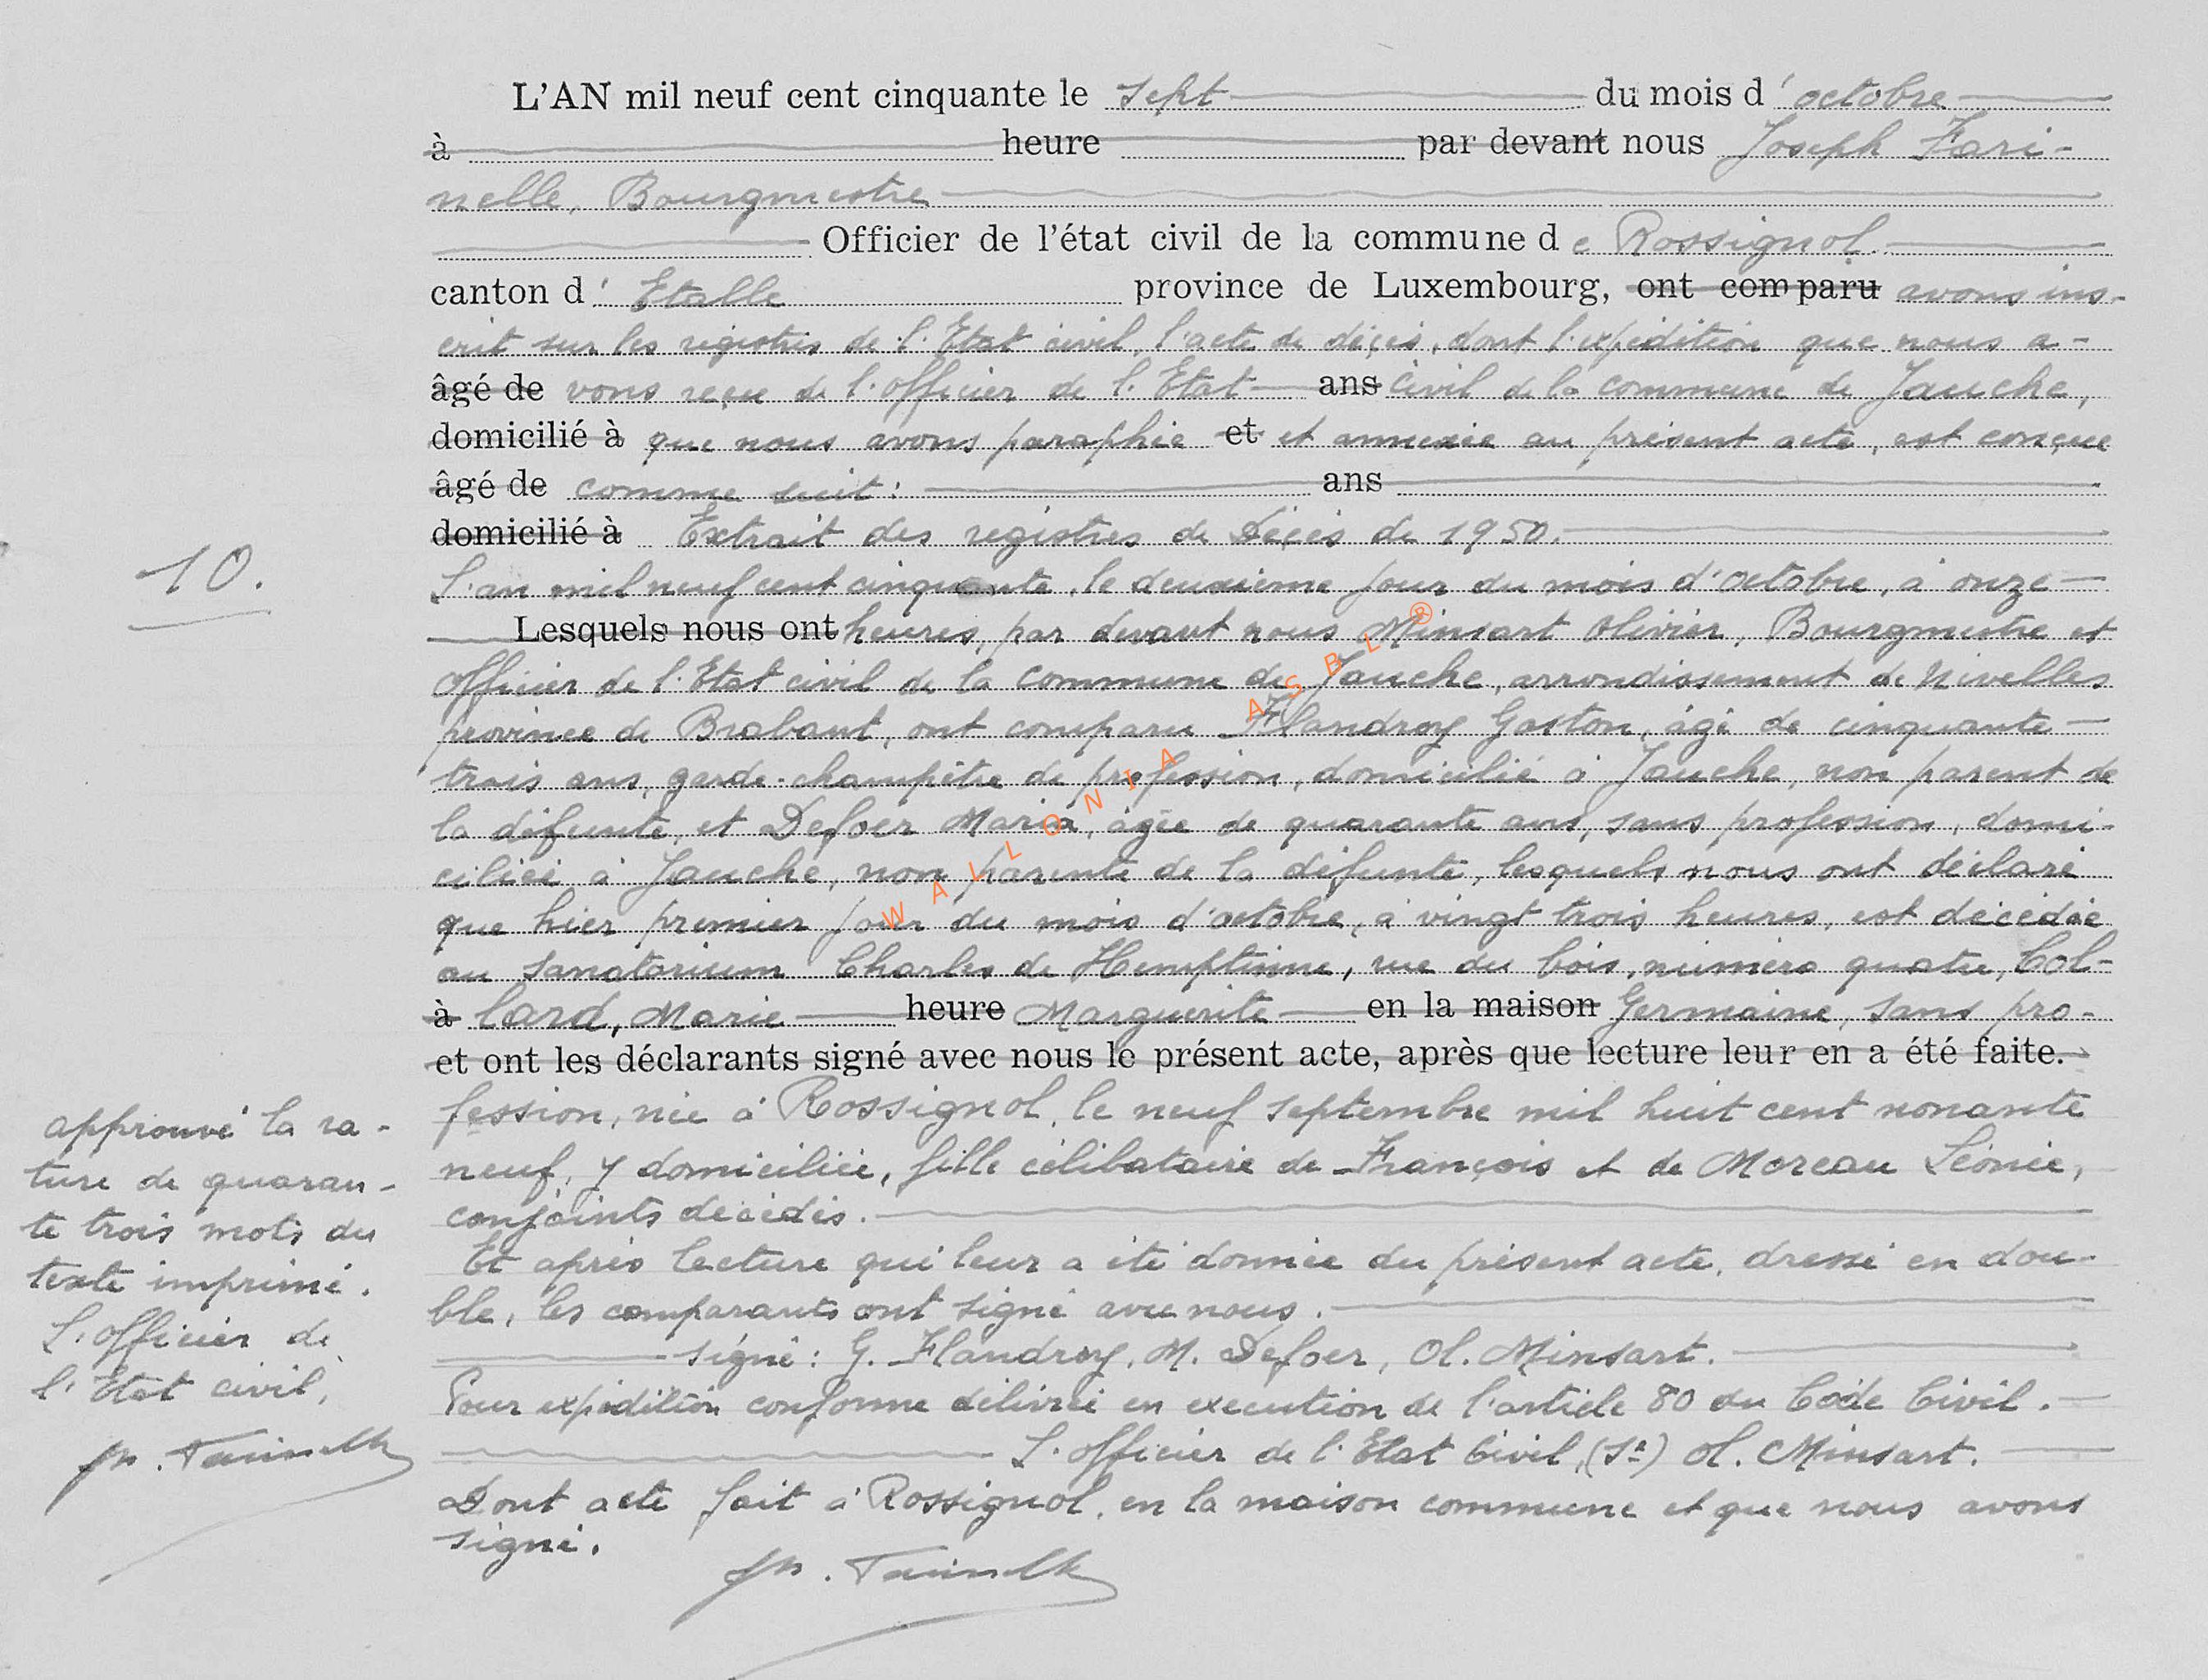 L'AN mil neuf cent cinquante le sept du mois d'octobre
à heure par devant nous Joseph Fari-
nelle, Bourgmestre
Officier de l'état civil de la commune de Rossignol
canton d'Etalle province de Luxembourg, ont comparu avons ins-
crit sur les registres de l'Etat civil, l'acte de décès, dont l'expédition que nous a-
âgé de vons reçu de l'officier de l'Etat ans civil de la commune de Jauche,
domicilié à que nous avons paraphée et et annexée au présent acte, est conçue
âgé de comme suit: ans
domicilié à Extrait des registres de Décès de 1950.
10.
L'an mil neuf cent cinquante, le deuxième jour du mois d'octobre, à onze
Lesquels nous ont heures, par devant nous Minsart Olivier, Bourgmestre et
officier de l'Etat civil de la commune de Jauche, arrondissement de Nivelles
province de Brabant, ont comparu Flandroy Gaston, âgé de cinquante
trois ans, garde-champêtre de profession, domicilié à Jauche, non parent de
la défunte, et Defoer Maria, âgée de quarante ans, sans profession, domi-
ciliée à Jauche, non parente de la défunte, lesquels nous ont déclaré
que hier premier jour du mois d'octobre, à vingt trois heures, est décédée
au sanatorium Charles de Hemptinne, rue du bois, numéro quatre, Col-
à lard, Marie heure Marguerite en la maison Germaine, sans pro-
et ont les déclarants signé avec nous le présent acte, après que lecture leur en a été faite.
fession, née à Rossignol, le neuf septembre mil huit cent nonante
neuf, y domiciliée, fille célibataire de François et de Moreau Léonie,
conjoints décédés.
Et après lecture qui leur a été donnée du présent acte, dressé en dou-
ble, les comparants ont signé avec nous.
signé: G. Flandroy, M. Defoer, Ol. Minsart.
Pour expédition conforme délivrée en exécution de l'article 80 du Code Civil.
L'officier de l'Etat Civil, (sé) Ol. Minsart.
Dont acte fait à Rossignol, en la maison commune et que nous avons
signé.
Jh. Farinelle
approuvé la ra-
ture de quaran-
te trois mots du
texte imprimé.
L'officier de
l'Etat civil,
Jh. Farinelle
WALLONIA ASBL®